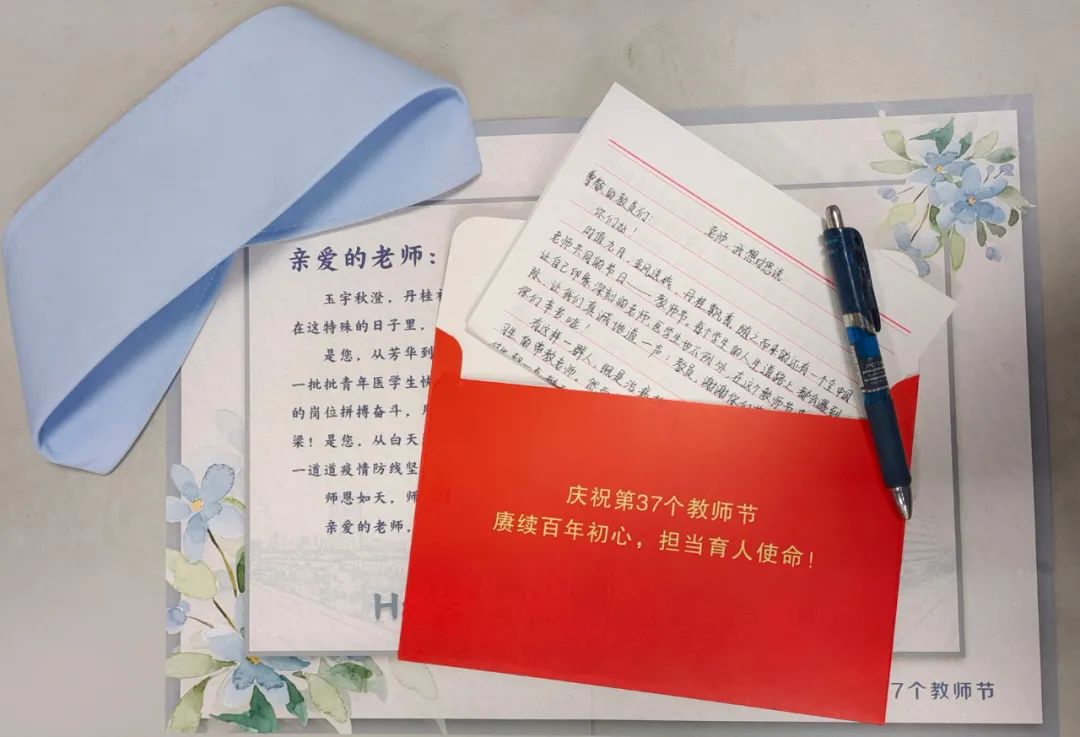 亲爱的老师：
玉宇秋澄，丹桂
在这特殊的日子里，
是您，从芳华到
一批批青年医学生快
的岗位拼搏奋斗，
梁！是您，从白天
一道道疫情防线坚
师恩如天，师
亲爱的老师，
尊敬的教员们：
老师，我想对您说
你们好！
时值九月，金风送爽、丹桂飘香，随之而来的还有一个全中国
老师共同的节日——教师节，每个学生的人生道路上都会遇到
让自己印象深刻的老师，医学生也不例外，在这个教师节
际，让我们真诚地道一声：教员，谢谢你们
你们辛苦啦！
在这样一群人，既是治病
庆祝第37个教师节
赓续百年初心，担当育人使命！
H
7个教师节